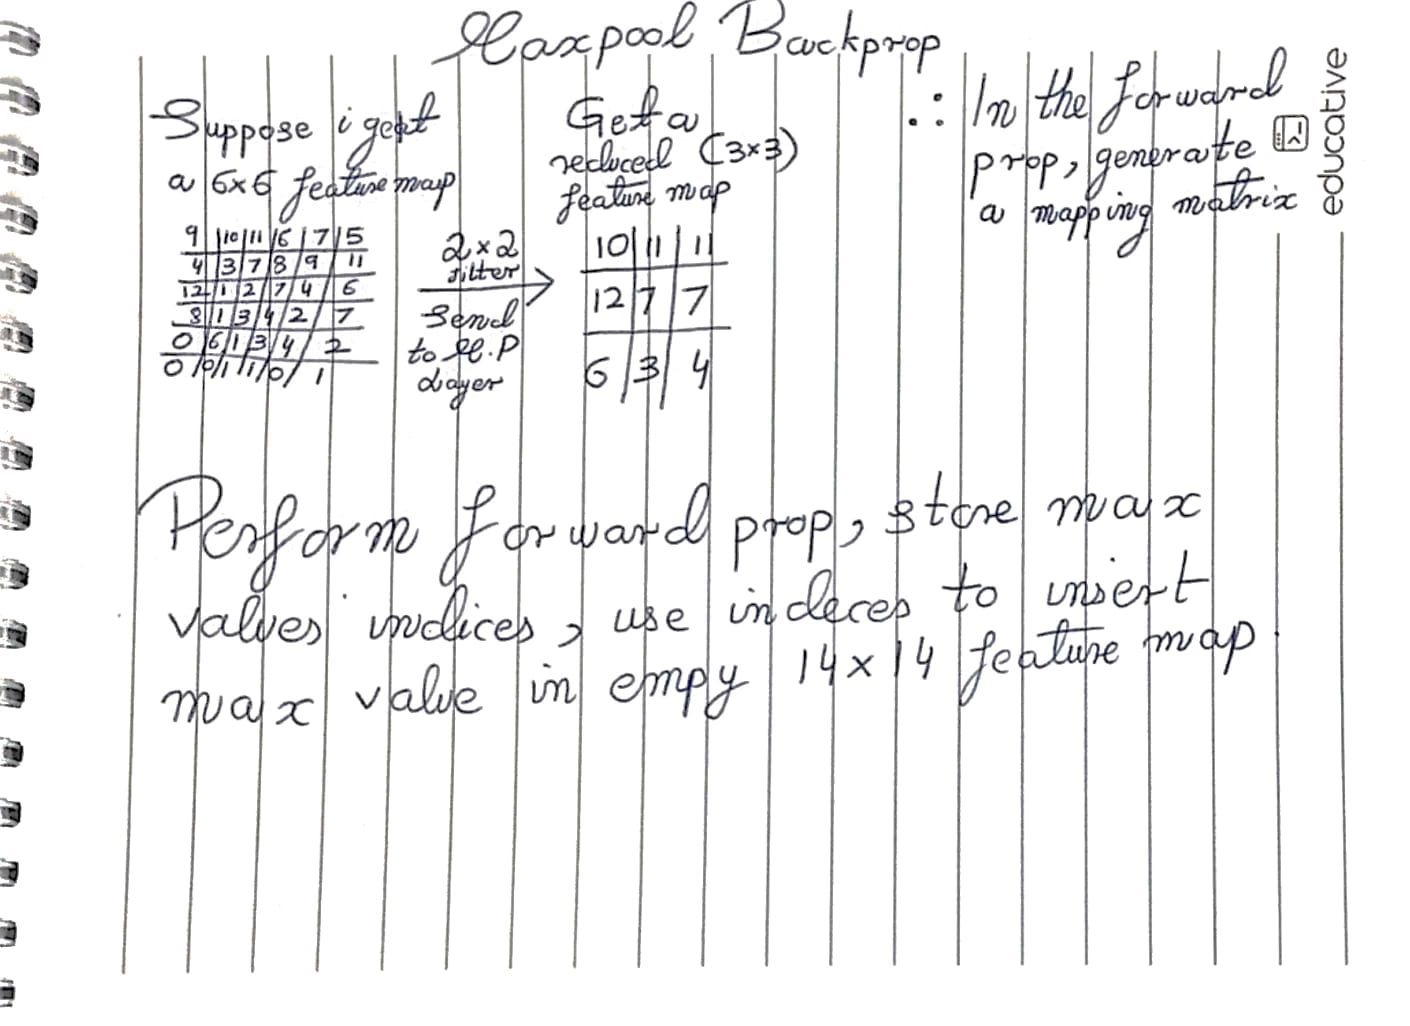 Maxpool Backprop
Suppose i get
a 6x6 feature map
9 10 11 6 7 5
4 3 7 8 9 11
12 1 2 7 4 6
8 1 3 4 2 7
0 6 1 3 4 2
0 0 1 1 0 1
2x2
filter
Send
to M.P
Layer
Get a
reduced (3x3)
feature map
10 11 11
12 7 7
6 3 4
∴ In the forward
prop, generate
a mapping matrix
educative
Perform forward prop, store max
values indices, use indeces to insert
max value in empy 14x14 feature map